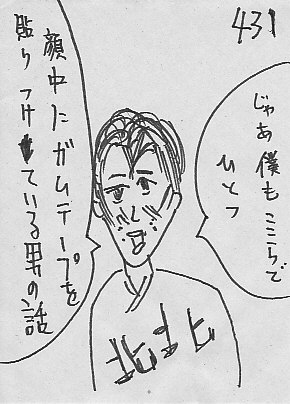 431
じゃあ僕もここらで
ひとつ
顔中にガムテープを
貼りつけている男の話